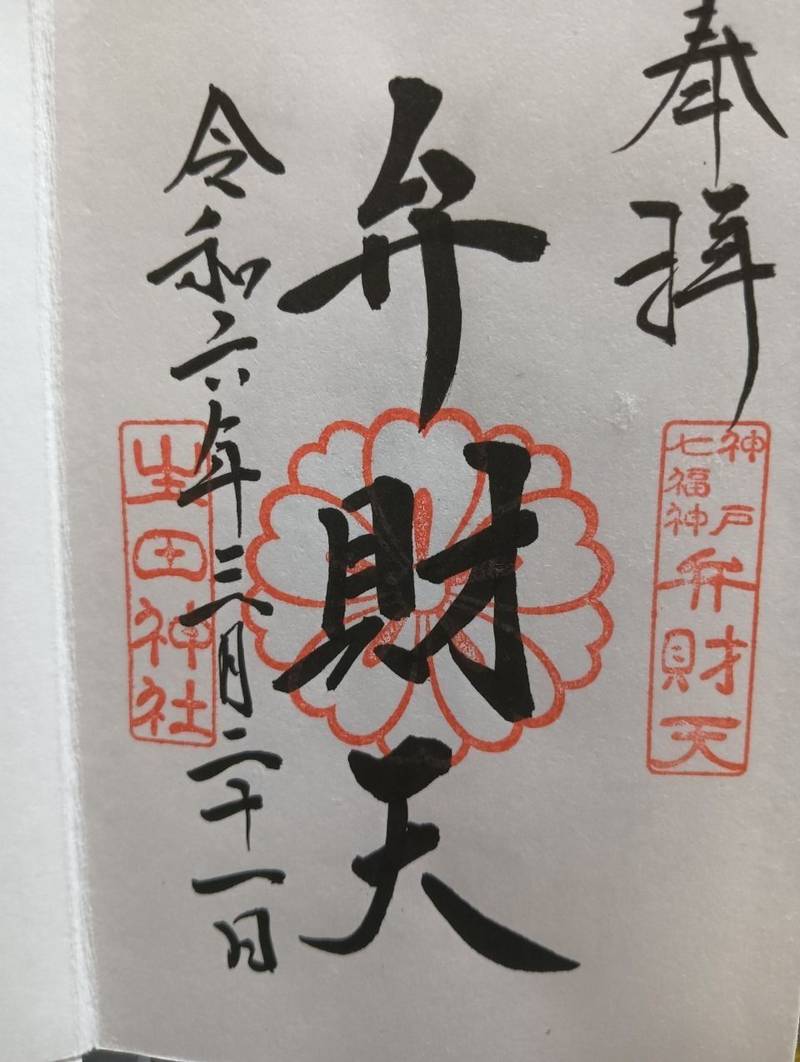 奉拝
神戸
七福神
弁財天
弁財天
令和六年三月二十一日
生田神社